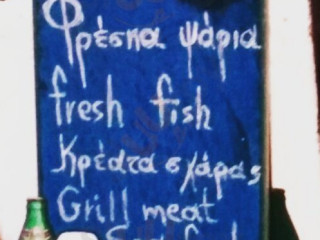 Φρέσκα ψάρια
fresh fish
Κρέατα σχάρας
Grill meat